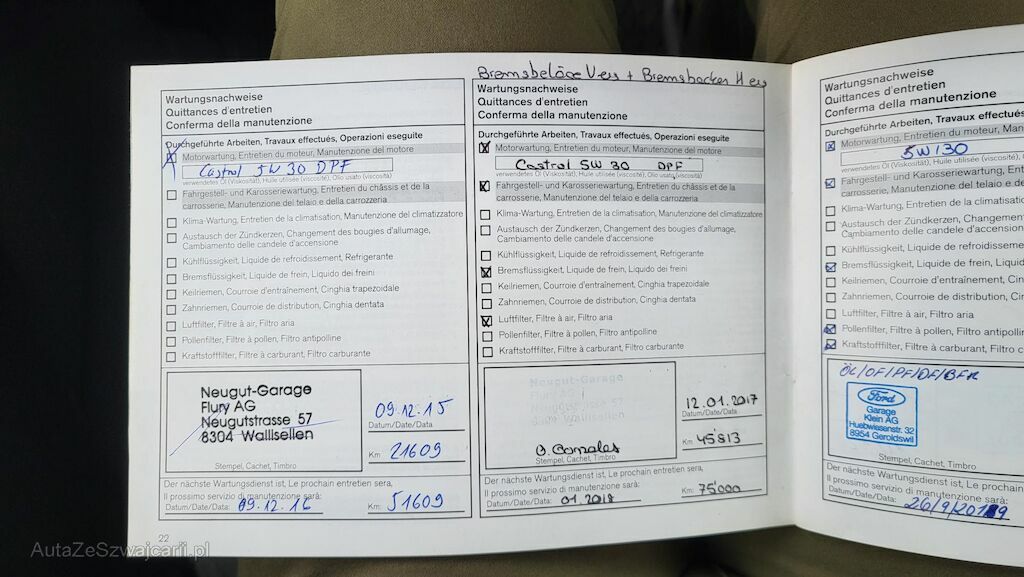 Wartungsnachweise
Quittances d'entretien
Conferma della manutenzione
Durchgeführte Arbeiten, Travaux effectués, Operazioni eseguite
Motorwartung, Entretien du moteur, Manutenzione del motore
Castrol 5W 30 DPF
verwendetes Öl (Viskosität), Huile utilisée (viscosité), Olio usato (viscosità)
Fahrgestell- und Karosseriewartung, Entretien du châssis et de la
carrosserie, Manutenzione del telaio e della carrozzeria
Klima-Wartung, Entretien de la climatisation, Manutenzione del climatizzatore
Austausch der Zündkerzen, Changement des bougies d'allumage,
Cambiamento delle candele d'accensione
Kühlflüssigkeit, Liquide de refroidissement, Refrigerante
Bremsflüssigkeit, Liquide de frein, Liquido dei freini
Keilriemen, Courroie d'entraînement, Cinghia trapezoidale
Zahnriemen, Courroie de distribution, Cinghia dentata
Luftfilter, Filtre à air, Filtro aria
Pollenfilter, Filtre à pollen, Filtro antipolline
Kraftstofffilter, Filtre à carburant, Filtro carburante
Neugut-Garage
Flury AG
Neugutstrasse 57
8304 Wallisellen
Stempel, Cachet, Timbro
09.12.15
Datum/Date/Data
Km 21609
Der nächste Wartungsdienst ist, Le prochain entretien sera,
Il prossimo servizio di manutenzione sarà:
Datum/Date/Data: 09.12.16 Km: 51609
22
Bremsbeläge V ers + Bremsbacken H ers
Wartungsnachweise
Quittances d'entretien
Conferma della manutenzione
Durchgeführte Arbeiten, Travaux effectués, Operazioni eseguite
Motorwartung, Entretien du moteur, Manutenzione del motore
Castrol 5W 30 DPF
verwendetes Öl (Viskosität), Huile utilisée (viscosité), Olio usato (viscosità)
Fahrgestell- und Karosseriewartung, Entretien du châssis et de la
carrosserie, Manutenzione del telaio e della carrozzeria
Klima-Wartung, Entretien de la climatisation, Manutenzione del climatizzatore
Austausch der Zündkerzen, Changement des bougies d'allumage,
Cambiamento delle candele d'accensione
Kühlflüssigkeit, Liquide de refroidissement, Refrigerante
Bremsflüssigkeit, Liquide de frein, Liquido dei freini
Keilriemen, Courroie d'entraînement, Cinghia trapezoidale
Zahnriemen, Courroie de distribution, Cinghia dentata
Luftfilter, Filtre à air, Filtro aria
Pollenfilter, Filtre à pollen, Filtro antipolline
Kraftstofffilter, Filtre à carburant, Filtro carburante
Neugut-Garage
Stempel, Cachet, Timbro
12.01.2017
Datum/Date/Data
Km 45'813
Der nächste Wartungsdienst ist, Le prochain entretien sera,
Il prossimo servizio di manutenzione sarà:
Datum/Date/Data: 01.2018 Km: 75'000
Wartungsnachweise
Quittances d'entretien
Conferma della manutenzione
Durchgeführte Arbeiten, Travaux effectués,
Motorwartung, Entretien du moteur, Manu
5W130
verwendetes Öl (Viskosität), Huile utilisée (viscosité),
Fahrgestell- und Karosseriewartung, En
carrosserie, Manutenzione del telaio e
Klima-Wartung, Entretien de la clima
Austausch der Zündkerzen, Chang
Cambiamento delle candele d'acc
Kühlflüssigkeit, Liquide de refroidisse
Bremsflüssigkeit, Liquide de frein,
Keilriemen, Courroie d'entraînem
Zahnriemen, Courroie de distribut
Luftfilter, Filtre à air, Filtro aria
Pollenfilter, Filtre à pollen, Filtro antipollin
Kraftstofffilter, Filtre à carburant, Filtro c
ÖL/OF/PF/DF/BFK
Ford
Garage
Klein AG
Huebwiesenstr. 32
8954 Geroldswil
Stempel, Cachet, Timbro
Der nächste Wartungsdienst ist, Le prochain entretien
Il prossimo servizio di manutenzione sarà:
Datum/Date/Data: 26/9/2019
AutaZeSzwajcarii.pl